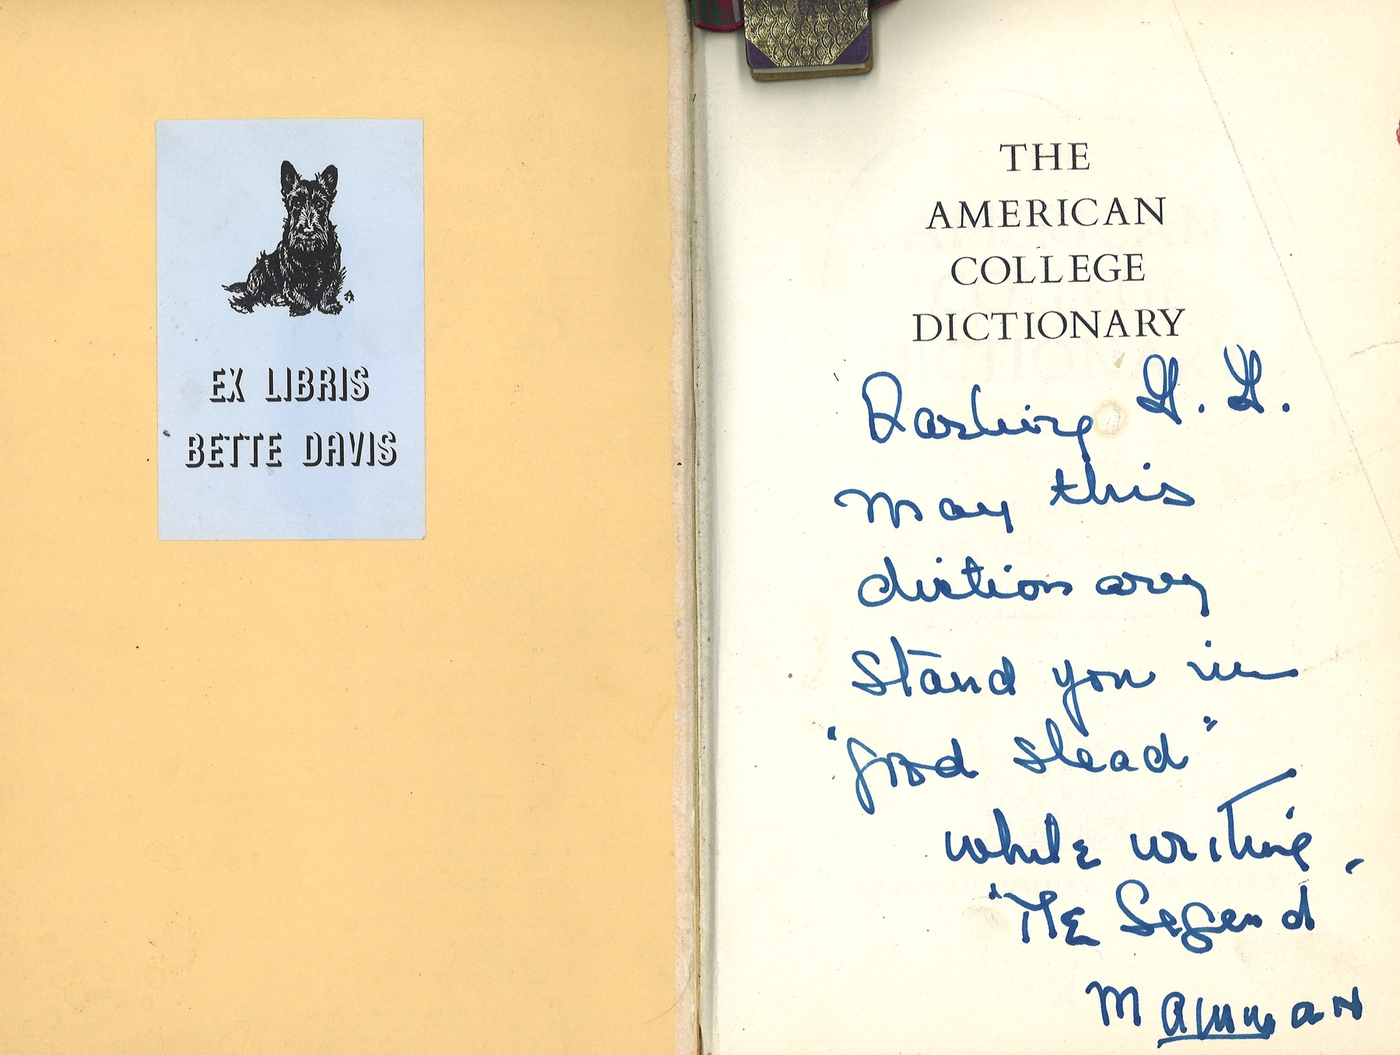 EX LIBRIS
BETTE DAVIS
THE
AMERICAN
COLLEGE
DICTIONARY
Darling G. G.
may this
dictionary
stand you in
"good stead"
while writing
"The Legend"